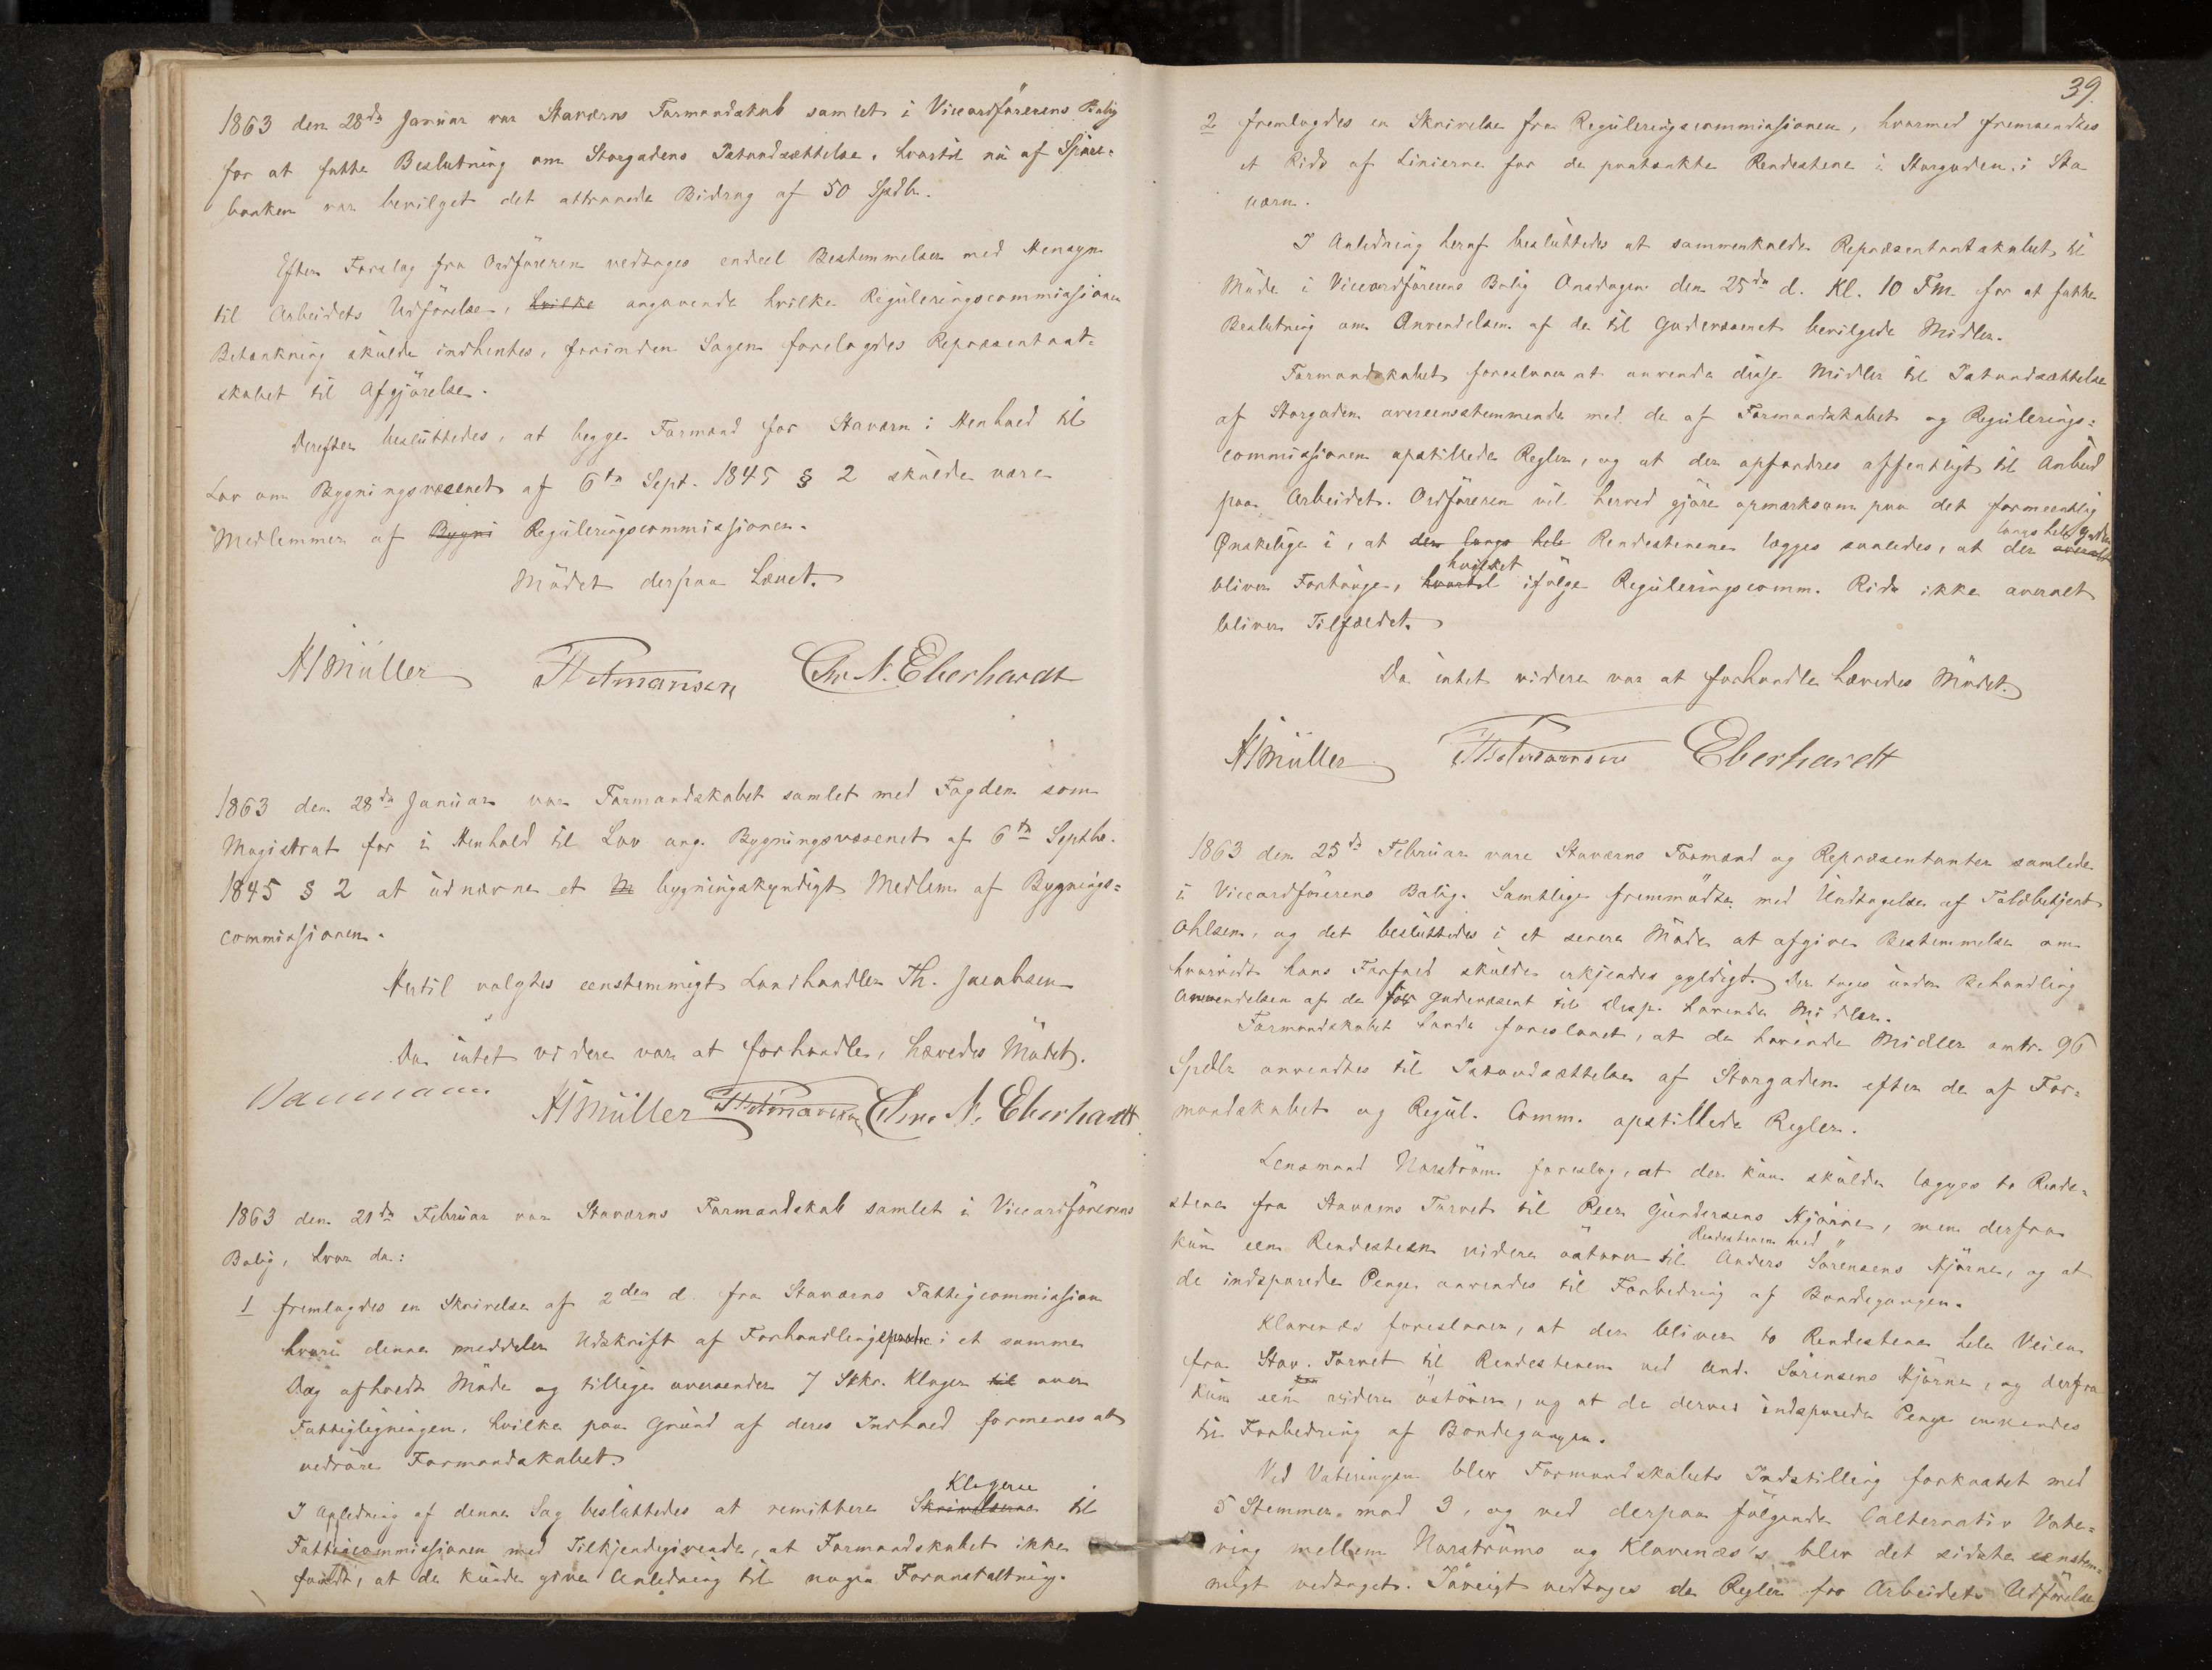 1863 den 28de Januar var Staværns Formandskab samlet i Viceordførerens Bolig
for at fatte Beslutning om Storgadens Istandsættelse, hvortil nu af Spare-
banken var bevilget det attraaede Bidrag af 50 Spdlr.
Efter Forslag fra Ordføreren vedtoges endeel Bestemmelser med Hensyn
til Arbeidets Udførelse, hvilke angaaende hvilke Reguleringscommissionen
Betænkning skulde indhentes, forinden Sagen forelagdes Repræsentant-
skabet til Afgjørelse.
Derefter besluttedes, at begge Formænd for Staværn i Henhold til
Lov om Bygningsvæsenet af 6te Sept. 1845 § 2 skulde være
Medlemmer af Bygni Reguleringscommissionen.
Mödet derpaa hævet.
HJMüller Chr. N. Eberhardt
1863 den 28de Januar var Formandskabet samlet med Fogden som
Magistrat for i Henhold til Lov ang. Bygningsvæsenet af 6te Septbr.
1845 § 2 at udnævne et M bygningskyndigt Medlem af Bygnings-
commissionen.
Hertil valgtes eenstemmigt Landhandler Th. Jacobsen
Da intet videre var at forhandle, hævedes Mödet.
HJMüller Chr. N. Eberhardt
1863 den 21de Februar var Staværns Formandskab samlet i Viceordførerens
Bolig, hvor da:
1 fremlagdes en Skrivelse af 2den d. fra Staværns Fattigcommission
hvori denne meddeler Udskrift af Forhandlingsprot. i et samme
Dag afholdt Möde og tillige oversender 7 Stkr. Klager til over
Fattigligningen, hvilke paa Grund af deres Indhold formenes at
vedröre Formandskabet.
I Anledning af denne Sag besluttedes at remittere Skrivelserne Klagerne til
Fattigcommissionen med Tilkjendegivende, at Formandskabet ikke
fandt, at de kunde give Anledning til nogen Foranstaltning.
39.
2 fremlagdes en Skrivelse fra Reguleringscommissionen, hvormed fremsendtes
et Rids af Linierne for de paatænkte Rendestene i Storgaden i Sta
værn.
I Anledning heraf besluttedes at sammenkalde Repræsentantskabet til
Möde i Viceordførerens Bolig Onsdagen den 25de d. Kl. 10 Fm. for at fatte
Beslutning om Anvendelsen af de til Gadevæsenet bevilgede Midler.
Formandskabet foreslaaer at anvende disse Midler til Istandsættelse
af Storgaden overeensstemmende med de af Formandskabet og Regulerings-
commissionen opstillede Regler, og at der opfordres offentligt til Anbud
paa Arbeidet. Ordføreren vil herved gjöre opmærksom paa det formeentlig
Ønskelige i, at der langs hele Rendestenene lægges saaledes, at der overalt langs hele Gaden
bliver Fortouge, hvortil hvilket ifölge Reguleringscomm. Rids ikke overalt
bliver Tilfældet.
Da intet videre var at forhandle hævedes Mödet.
HJMüller Eberhardt
1863 den 25de Februar vare Staværns Formænd og Repræsentanter samlede
i Viceordførerens Bolig. Samtlige fremmödte med Undtagelse af Toldbetjent
Ohlsen, og det besluttedes i et senere Möde at afgive Bestemmelse om
hvorvidt hans Forfald skulde erkjendes gyldigt. Der toges under Behandling
Anvendelsen af de for Gadevæsent til Disp. havende Midler.
Formandskabet havde foreslaaet, at de havende Midler omtr. 96
Spdlr anvendtes til Istandsættelse af Storgaden efter de af For-
mandskabet og Regul. Comm. opstillede Regler.
Lensmand Norström foreslog, at der kun skulde lægges to Rende-
stene fra Staværns Torvet til Peer Gundersens Hjörne, men derfra
kun een Rendesteen videre östover til Rendestenen ved Anders Sörensens Hjörne, og at
de indsparede Penge anvendes til Forbedring af Bondegangen.
Klavenæs foreslaaer, at der bliver to Rendestene hele Veien
fra Stav. Torvet til Rendestenen ved And. Sörensens Hjörne, og derfra
kun een videre östover, og at de derved indsparede Penge anvendes
til Forbedring af Bondegangen.
Ved Voteringen blev Formandskabets Indstilling forkastet med
5 Stemmer mod 3, og ved derpaa fölgende alternativ Vote-
ring mellem Norströms og Klavenæs's blev det sidste eenstem-
migt vedtaget. Iövrigt vedtoges de Regler for Arbeidets Udförelse